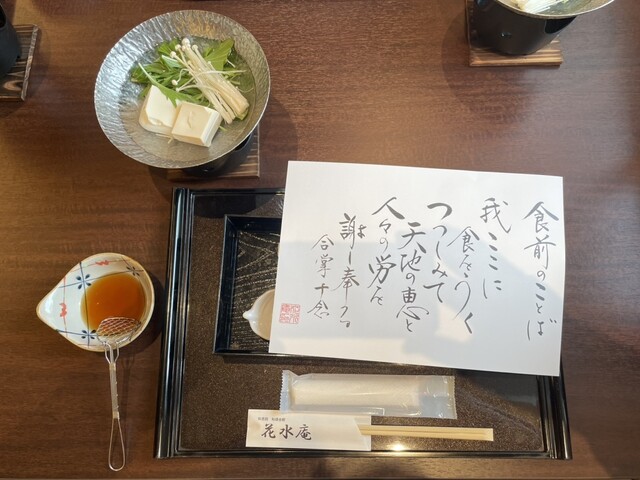 食前のことば
我ここに
食をうく
つつしみて
天地の恵と
人々の労を
謝し奉る。
合掌 十念
花水庵